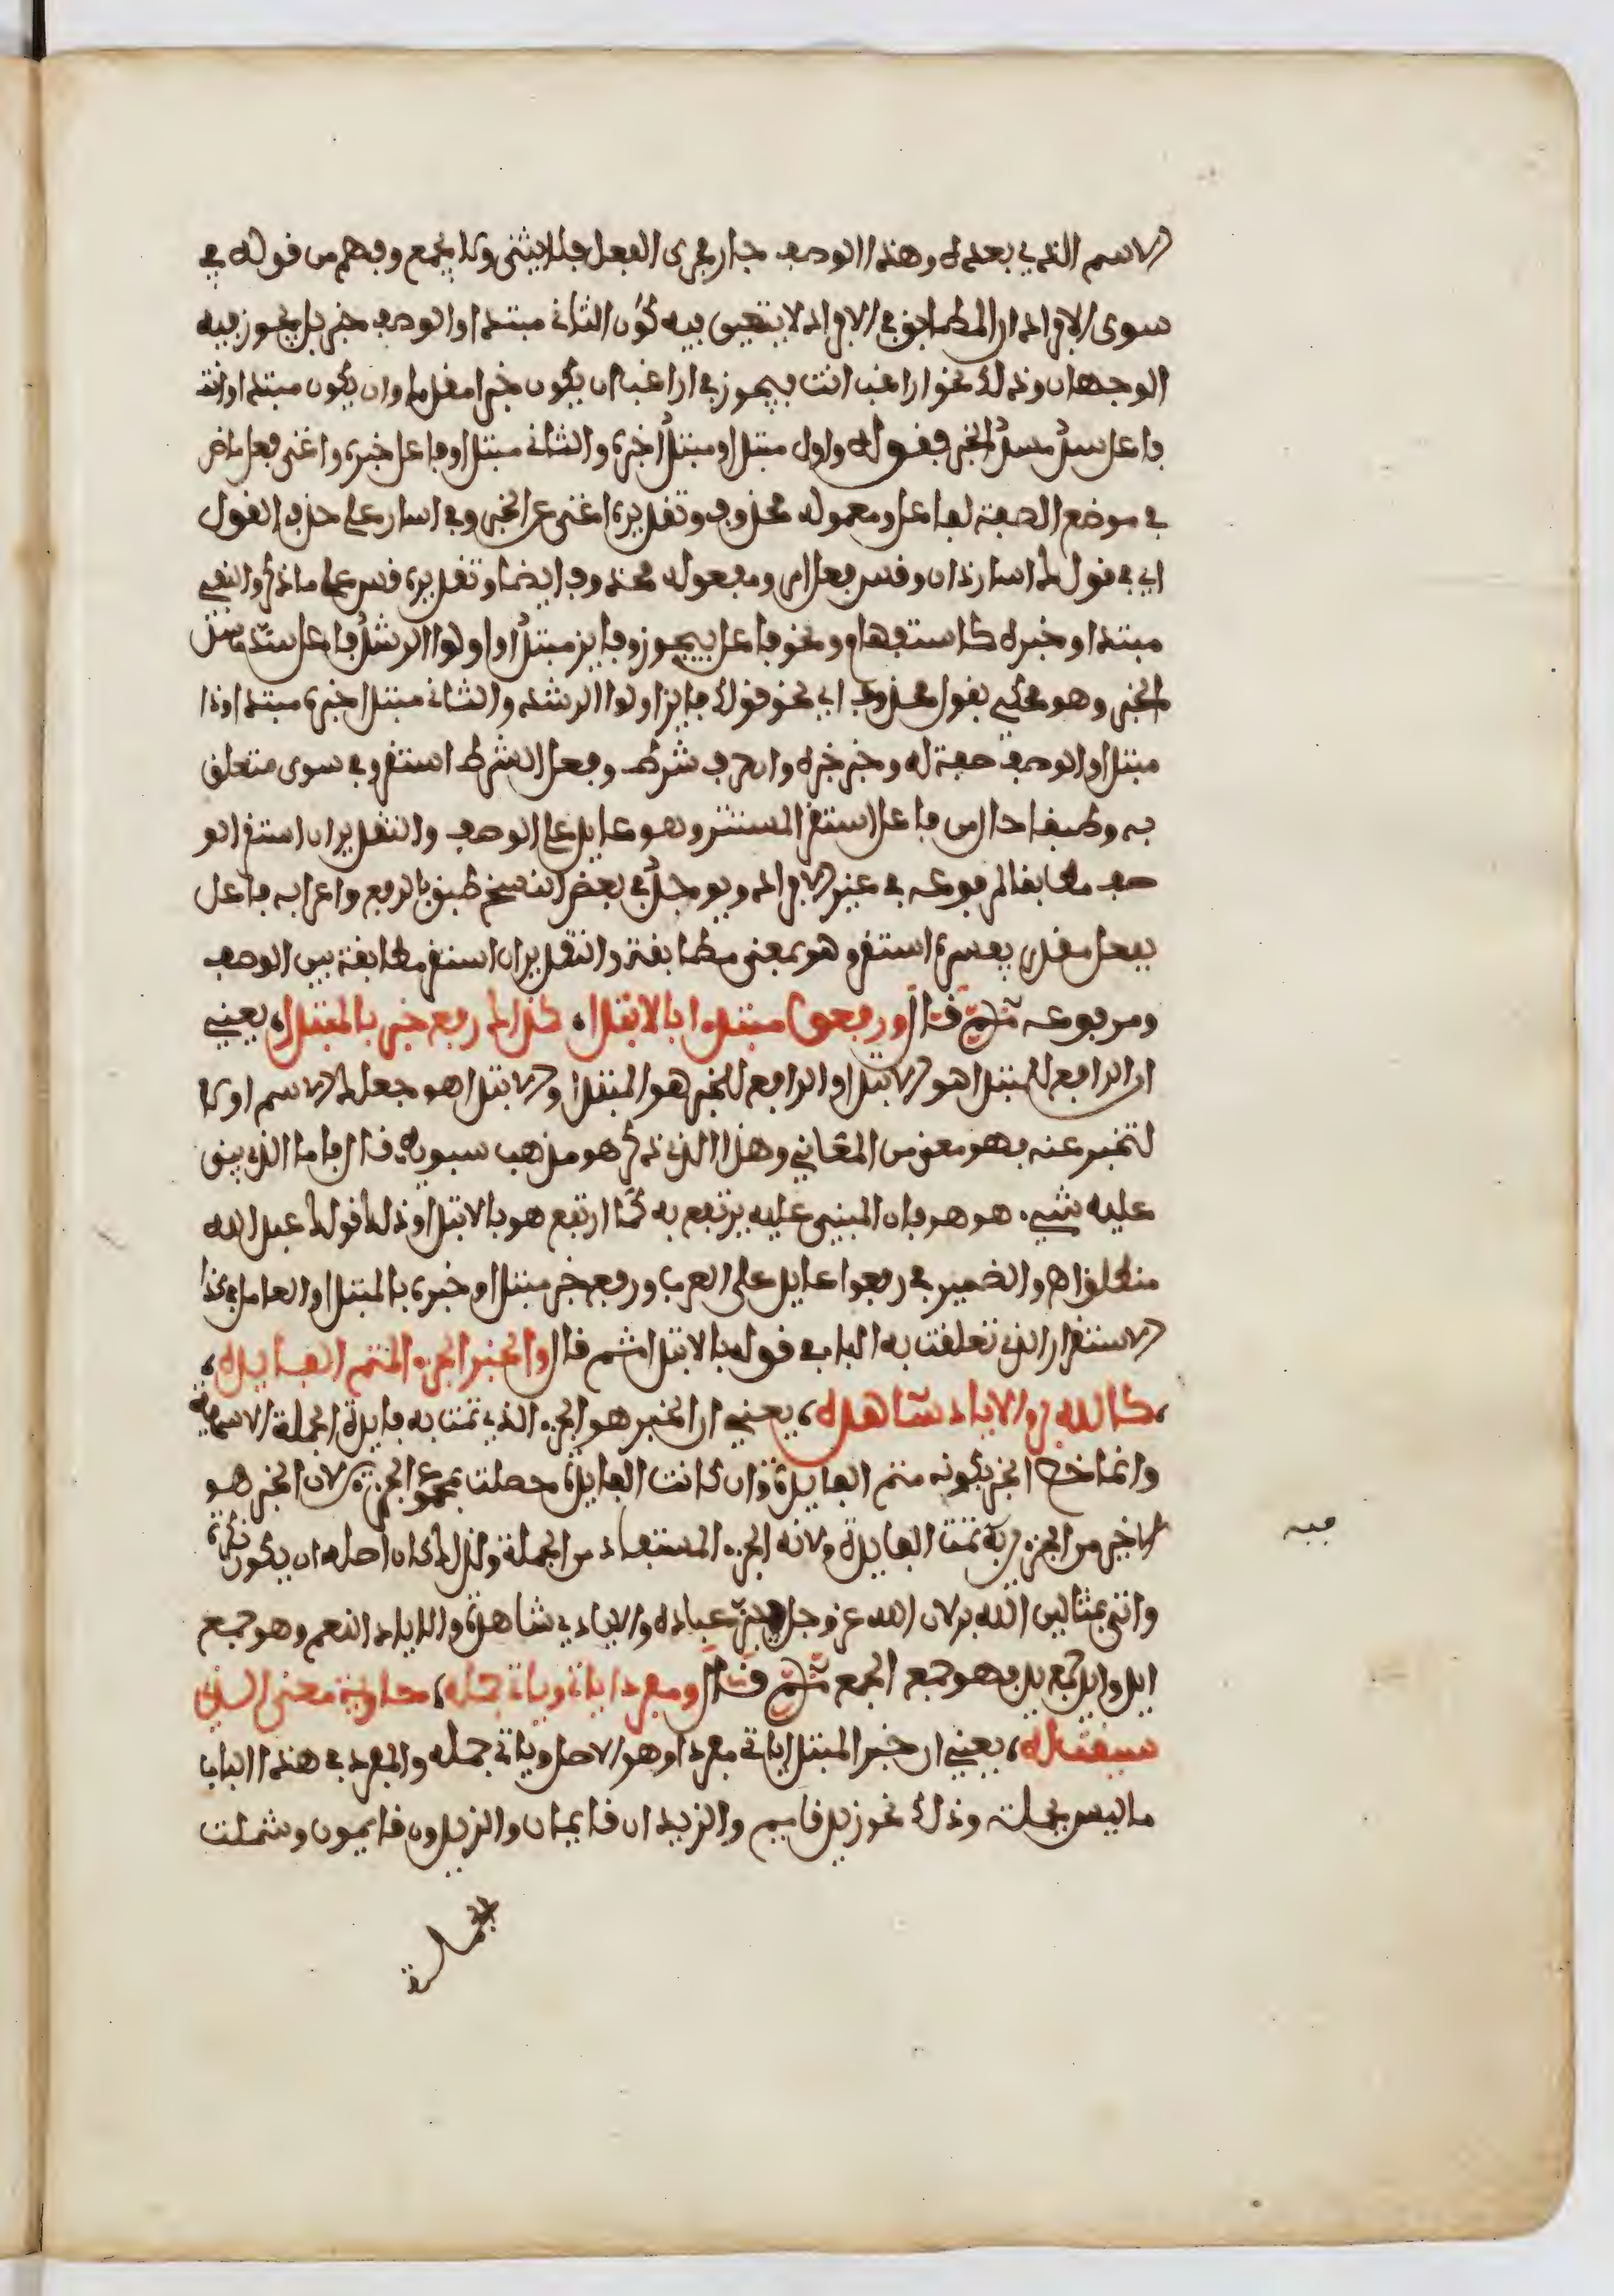 الاسم الذي بعده وهذا الوصف جار مجرى الفعل فلا يثنى ولا يجمع وفهم من قوله في
سوى الافراد ان المطابق في الافراد لا يتعين فيه كون الثاني مبتدا والوصف خبر بل يجوز فيه
الوجهان وذلك نحو اراغب انت فيجوز في اراغب ان يكون خبرا مقدما وان يكون مبتدا وانت
فاعل سد مسد الخبر فقوله واول مبتدا ومبتدا خبره والثاني مبتدا وفاعل خبره واغنى فعل ماض
في موضع الصفة لفاعل ومعموله محذوف وتقديره اغنى عن الخبر وفي اسار على حذف القول
اي في قولك اسار ذان وقس فعل امر ومفعوله محذوف ايضا وتقديره قس على ما ذكر والنفي
مبتدا وخبره كاستفهام ونحو فاعل يجوز وفايز مبتدا واولوا الرشد فاعل سد مسد
الخبر وهو محكي بقول محذوف اي نحو قولك فايز اولوا الرشد والثاني مبتدا خبره مبتدا وذا
مبتدا والوصف صفة له وخبر خبره وان حرف شرط وفعل الشرط استقر وفي سوى متعلق
به وطبقا حال من فاعل استقر المستتر وهو عايد على الوصف والتقدير ان استقر الو
صف مطابقا لمرفوعه في غير الافراد ويوجد في بعض النسخ طبق بالرفع واعرابه فاعل
بفعل مقدر يفسره استقر وهو بمعنى مطابقة والتقدير ان استقر مطابقة بين الوصف
ومرفوعه ثم قال ورفعوا مبتدوا بالابتدا، كذاك رفع خبر بالمبتدا، يعني
ان الرافع للمبتدا هو الابتدا والرافع للخبر هو المبتدا والابتدا هو جعلك الاسم اولا
لتخبر عنه فهو معنى من المعاني وهذا الذي ذكر هو مذهب سيبويه قال فاما الذي يبنى
عليه شيء هو هو فان المبني عليه يرتفع به كما ارتفع هو بالابتدا وذلك قولك عبد الله
منطلق اه والضمير في رفعوا عايد على العرب ورفع خبر مبتدا وخبره بالمبتدا والعامل في كذا
الاستقرار الذي تعلقت به الباء في قوله بالابتدا ثم قال والخبر الجزء المتم الفايده،
، كالله بر والاياد شاهده، يعني ان الخبر هو الجزء الذي تمت به فايدة الجملة الاسمية
وانما خص الخبر بكونه متم الفايدة وان كانت الفايدة حصلت بمجموع الجزءين لان الخبر هو
الاخير من الجزءين به تمت الفايدة ولانه الجزء المستفاد من الجملة ولذلك كان اصله ان يكون نكرة
فيه
واتى بمثالين الله بر لان الله عز وجل يبر عباده والايادي شاهدة والاياد النعم وهو جمع
ايد وايد جمع يد فهو جمع الجمع ثم قال ومفردا ياتي وياتي جمله، حاوية معنى الذي
سيقت له، يعني ان خبر المبتدا ياتي مفردا وهو الاصل وياتي جمله والمفرد في هذا الباب
ما ليس بجملة وذلك نحو زيد قايم والزيدان قايمان والزيدون قايمون وشملت